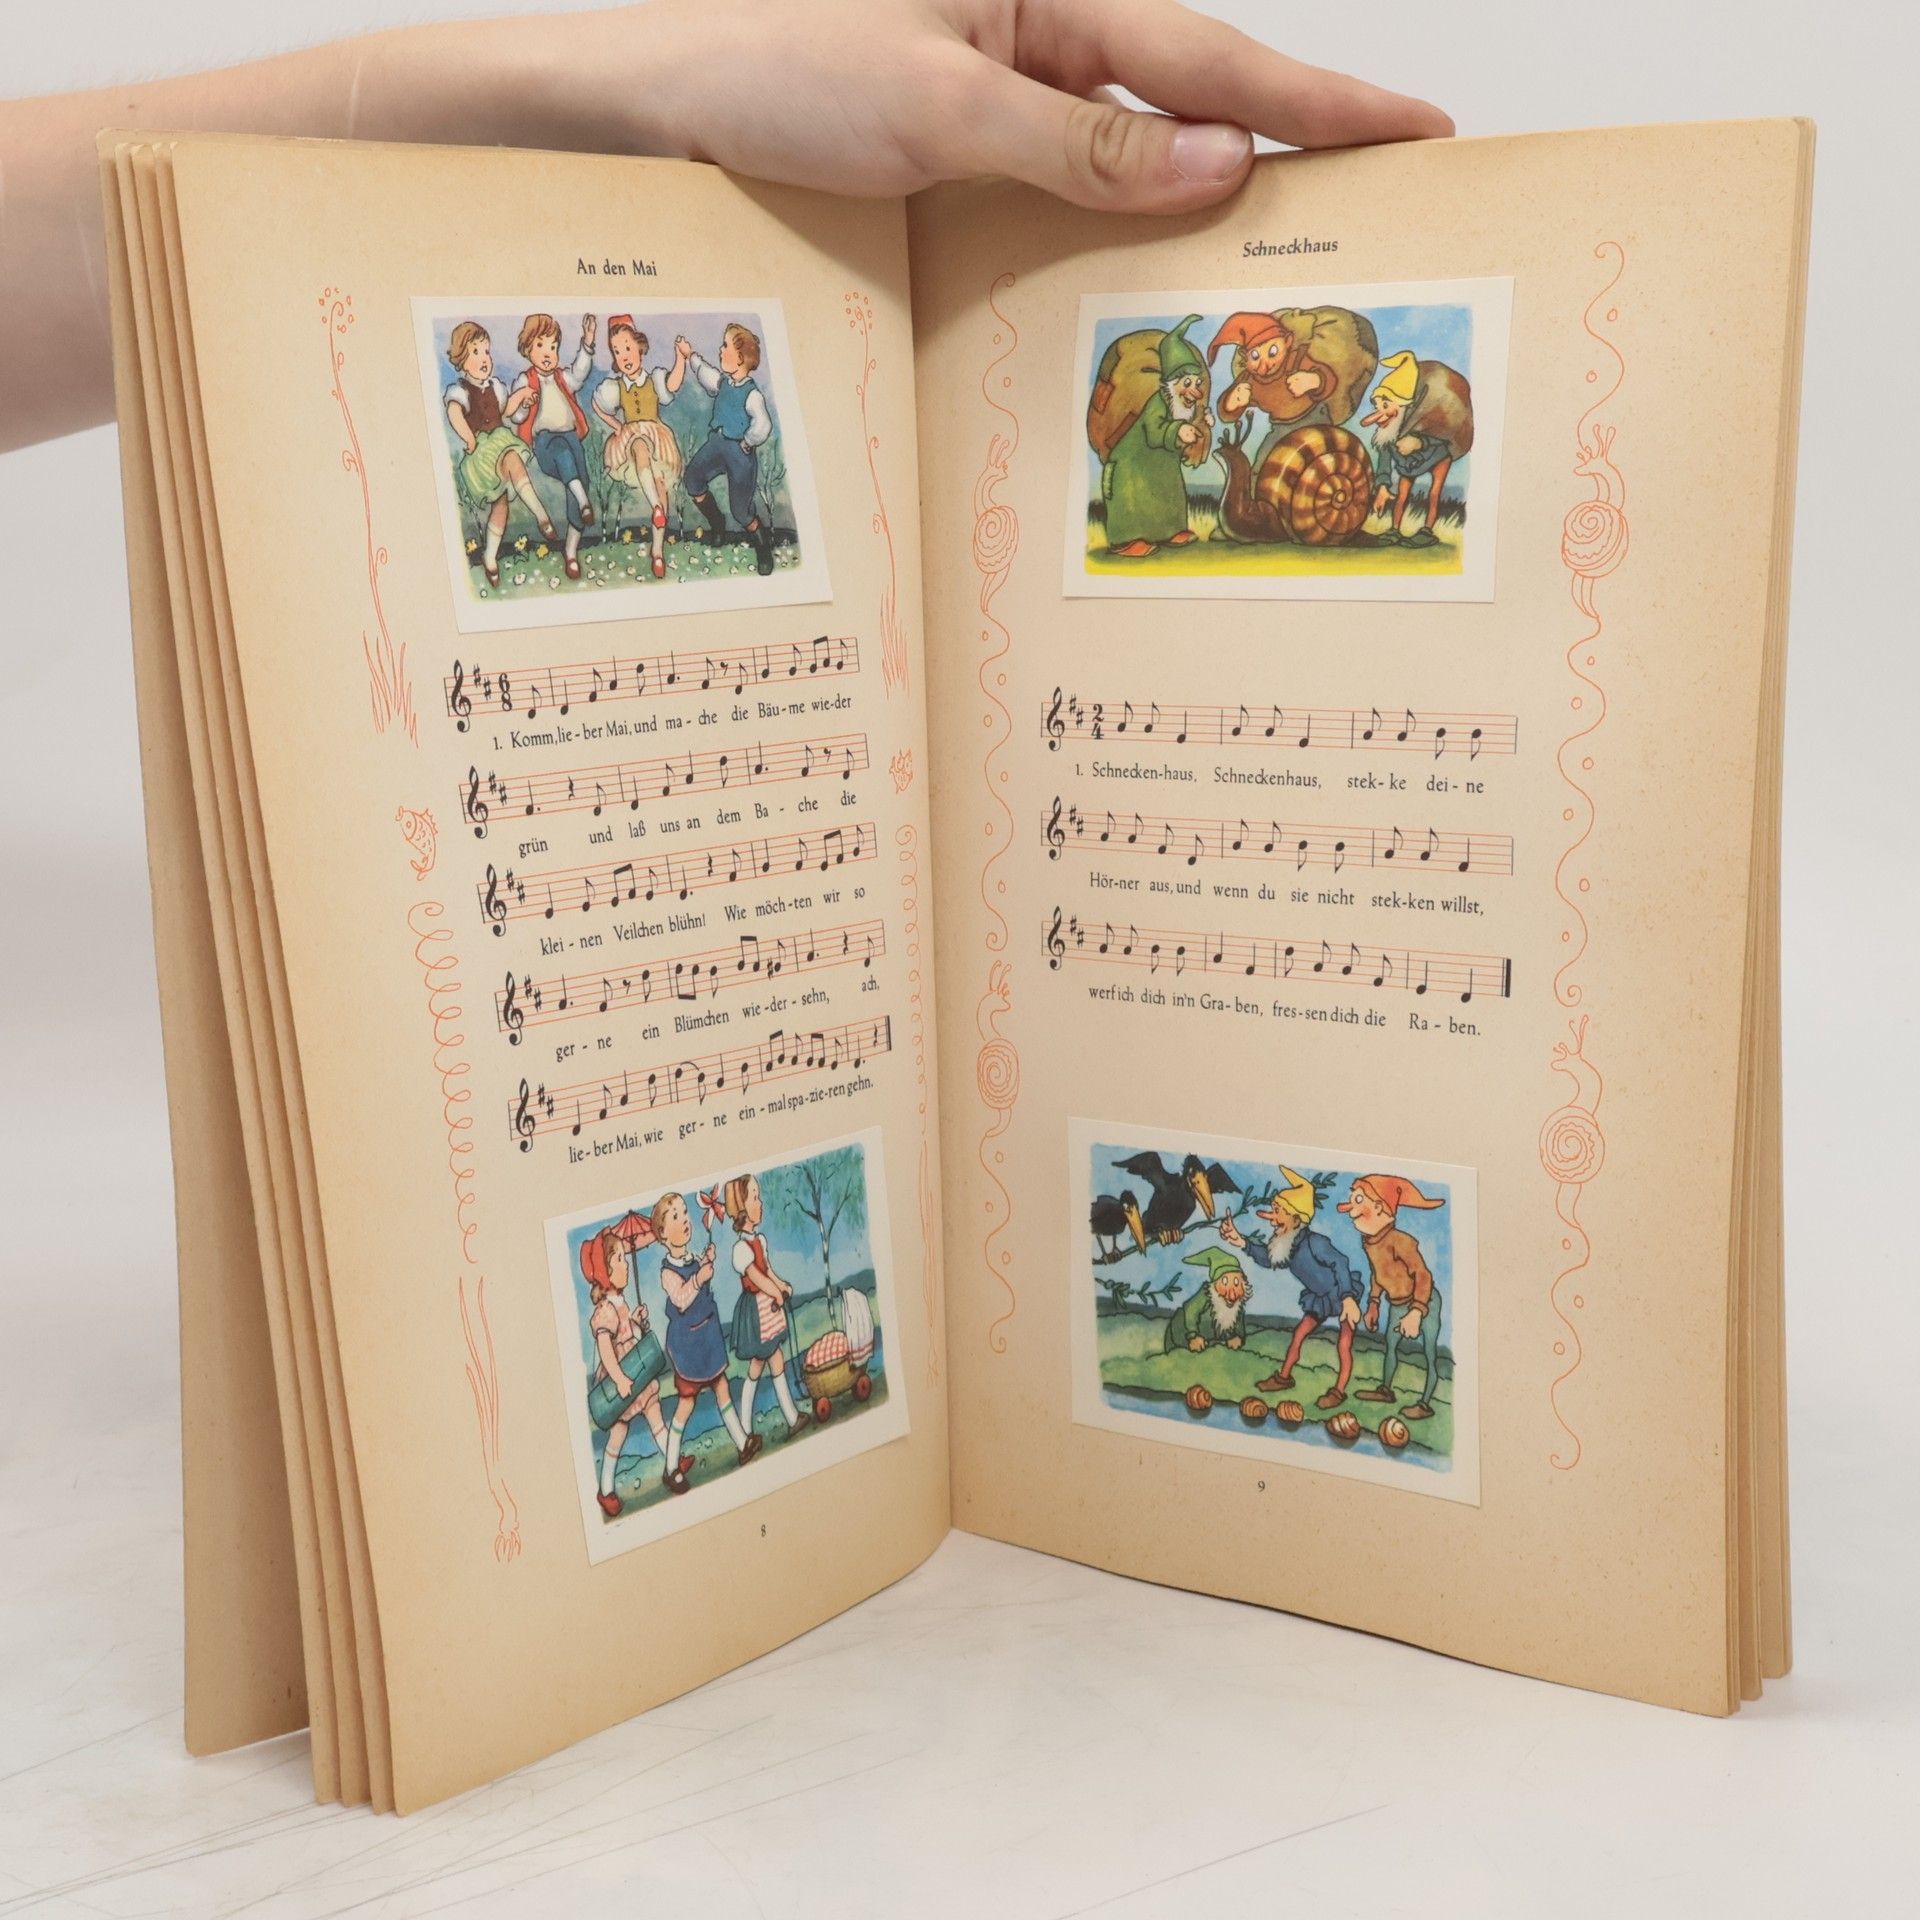 An den Mai
6
8
1. Komm,lie-ber Mai, und ma-che die Bäu-me wie-der
grün und laß uns an dem Ba-che die
klei-nen Veilchen blühn! Wie möch-ten wir so
ger-ne ein Blümchen wie-der-sehn, ach,
lie-ber Mai, wie ger-ne ein-mal spa-zie-ren gehn.
8
Schneckhaus
2
4
1. Schnecken-haus, Schneckenhaus, stek-ke dei-ne
Hör-ner aus, und wenn du sie nicht stek-ken willst,
werf ich dich in'n Gra-ben, fres-sen dich die Ra-ben.
9